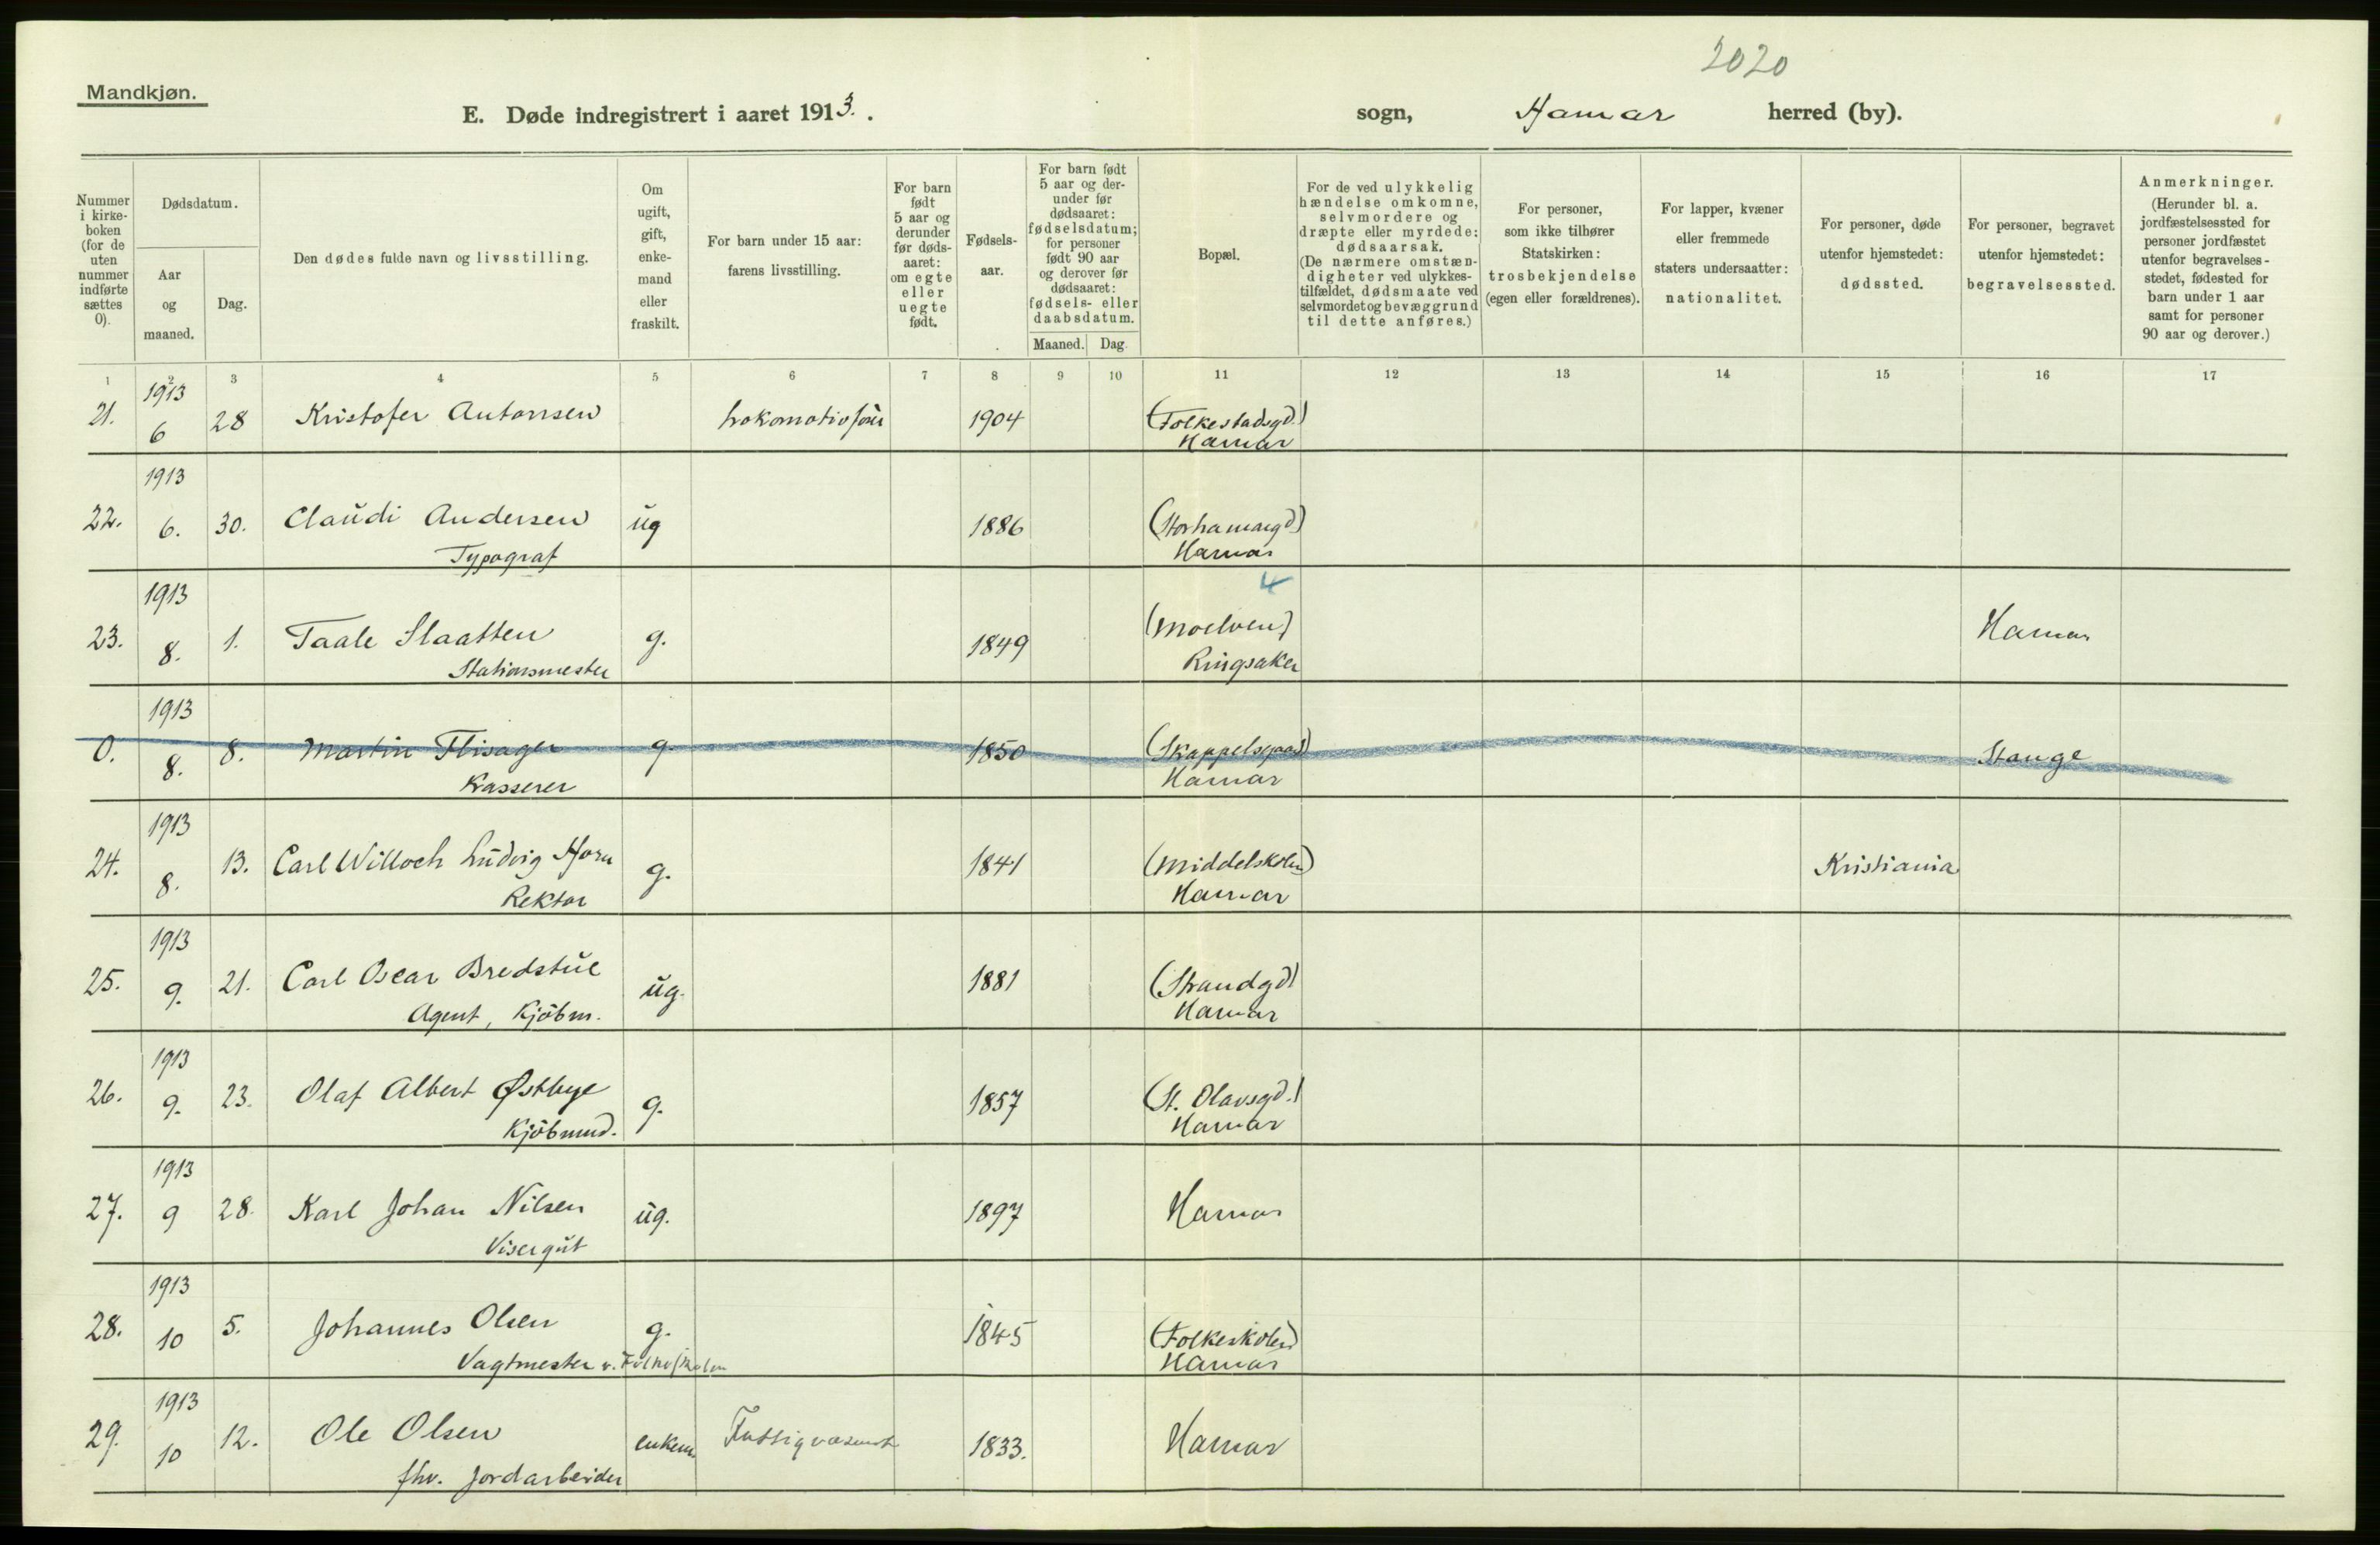 2020
Mandkjøn.
E. Døde indregistrert i aaret 1913. sogn, Hamar herred (by).
Nummer i kirke- boken (for de uten nummer indførte sættes 0).
Dødsdatum.
Aar og maaned.
Dag.
Den dødes fulde navn og livsstilling.
Om ugift, gift, enke- mand eller fraskilt.
For barn under 15 aar: farens livsstilling.
For barn født 5 aar og derunder før døds- aaret: om egte eller uegte født.
Fødsels- aar.
For barn født 5 aar og der- under før dødsaaret: fødselsdatum; for personer født 90 aar og derover før dødsaaret: fødsels- eller daabsdatum.
Maaned. Dag.
Bopæl.
For de ved ulykkelig hændelse omkomne, selvmordere og dræpte eller myrdede: dødsaarsak. (De nærmere omstæn- digheter ved ulykkes- tilfældet, dødsmaate ved selvmordet og bevæggrund til dette anføres.)
For personer, som ikke tilhører Statskirken: trosbekjendelse (egen eller forældrenes).
For lapper, kvæner eller fremmede staters undersaatter: nationalitet.
For personer, døde utenfor hjemstedet: dødssted.
For personer, begravet utenfor hjemstedet: begravelsessted.
Anmerkninger. (Herunder bl. a. jordfæstelsessted for personer jordfæstet utenfor begravelses- stedet, fødested for barn under 1 aar samt for personer 90 aar og derover.)
1 2 3 4 5 6 7 8 9 10 11 12 13 14 15 16 17
1913
21. 6 28 Kristofer Antonsen 1904 (Folkestadsgd.)
Hamar
1913
22. 6. 30. Claudi Andersen ug 1886 (Storhamargd)
Typograf Hamar
4
1913
23. 8. 1. Taale Slaatten g. 1849 (Moelven) Hamar
Stationsmester Ringsaker
1913
0. 8. 8. Martin Flisager g 1850 (Skappelsgaard) Stange
Kasserer Hamar
1913
24. 8. 13. Carl Willoch Ludvig Horn g. 1841 (Middelskolen) Kristiania
Rektor Hamar
1913
25. 9. 21. Carl Oscar Bredstue ug. 1881 (Strandgd)
Agent, Kjöbm. Hamar
1913
26. 9. 23. Olaf Albert Østbye g. 1857 (St. Olavsgd.)
Kjöbmnd. Hamar
1913
27. 9 28. Karl Johan Nilsen ug. 1897 Hamar
Visergut
1913
28. 10 5. Johannes Olsen g. 1845 (Folkeskolen)
Vagtmester v. Folkeskolen Hamar
1913
29. 10 12. Ole Olsen enkem. Fattigvæsenet 1833. Hamar
fhv. Jordarbeider